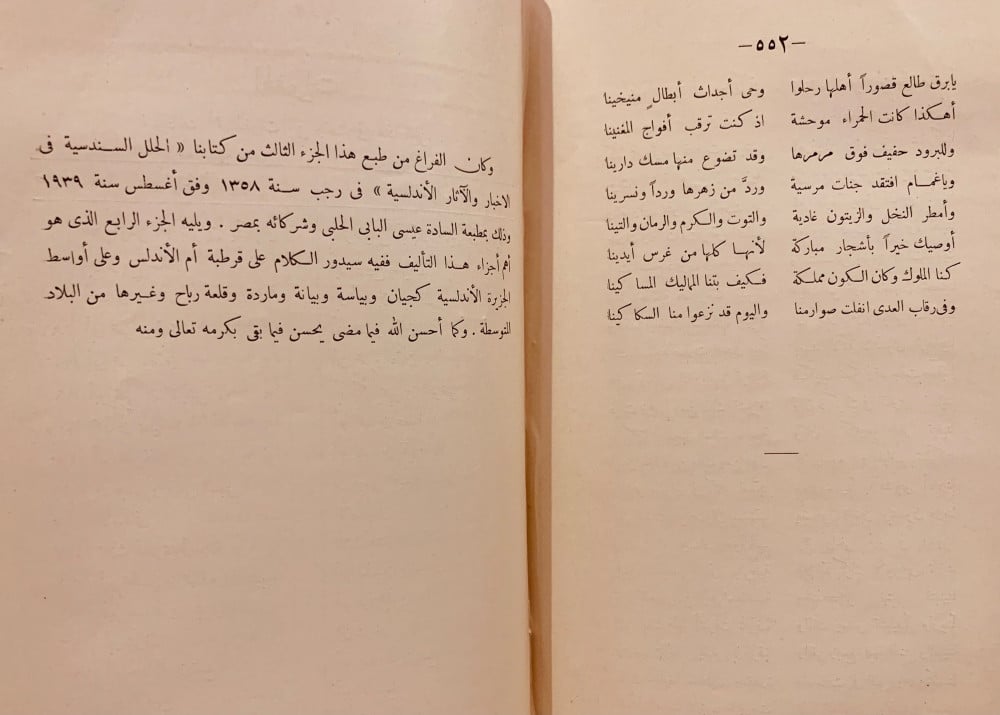 —٥٥٢—
يابرق طالع قصوراً أهلها رحلوا وحى أجداث أبطالٍ منيخينا
أهكذا كانت الحمراء موحشة اذ كنت ترقب أفواج المغنينا
وللبرود حفيف فوق مرمرها وقد تضوع منها مسك دارينا
وياغمام افتقد جنات مرسية وردَّ من زهرها ورداً ونسرينا
وأمطر النخل والزيتون غادية والتوت والكرم والرمان والتينا
أوصيك خيراً بأشجار مباركة لأنها كلها من غرس أيدينا
كنا الملوك وكان الكون مملكة فكيف بتنا المماليك المساكينا
وفى رقاب العدى انفلت صوارمنا واليوم قد نزعوا منا السكاكينا
وكان الفراغ من طبع هذا الجزء الثالث من كتابنا « الحلل السندسية فى
الاخبار والآثار الأندلسية » فى رجب سنة ١٣٥٨ وفق أغسطس سنة ١٩٣٩
وذلك بمطبعة السادة عيسى البابى الحلبى وشركائه بمصر . ويليه الجزء الرابع الذى هو
أهم أجزاء هذا التأليف ففيه سيدور الكلام على قرطبة أم الأندلس وعلى أواسط
الجزيرة الأندلسية كجيان وبياسة وبيانة وماردة وقلعة رباح وغيرها من البلاد
المتوسطة . وكما أحسن الله فيما مضى يحسن فيما بقى بكرمه تعالى ومنه